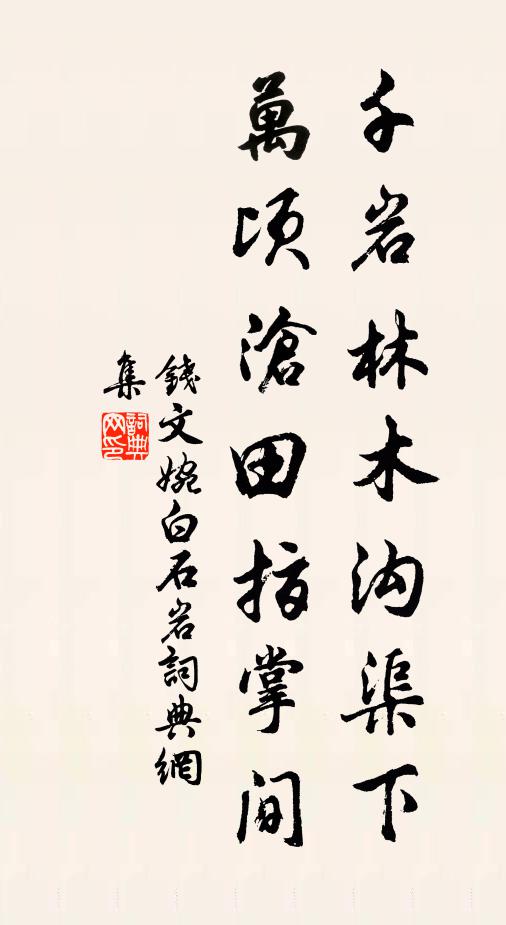 千岩林木沟渠下
萬頃滄田指掌間
錢文婉白石岩詞典網
集
詞典網印